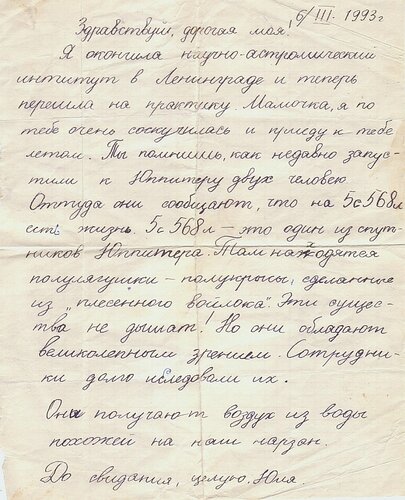 6/III. 1993г
Здравствуй, дорогая моя!
Я окончила научно-астромический
институт в Ленинграде и теперь
перешла на практику. Мамочка, я по
тебе очень соскучилась и приеду к тебе
летом. Ты помнишь, как недавно запус-
тили к Юппитеру двух человек.
Оттуда они сообщают, что на 5с568л
есть жизнь. 5с568л – это один из спут-
ников Юппитера. Там находятся
полулягушки – полукрысы, сделанные
из "плесенного войлока". Эти сущес-
тва не дышат! Но они обладают
великолепным зрением. Сотрудни-
ки долго иследовали их.
Они получают воздух из воды
похожей на наш нарзан.
До свидания, целую. Юля.